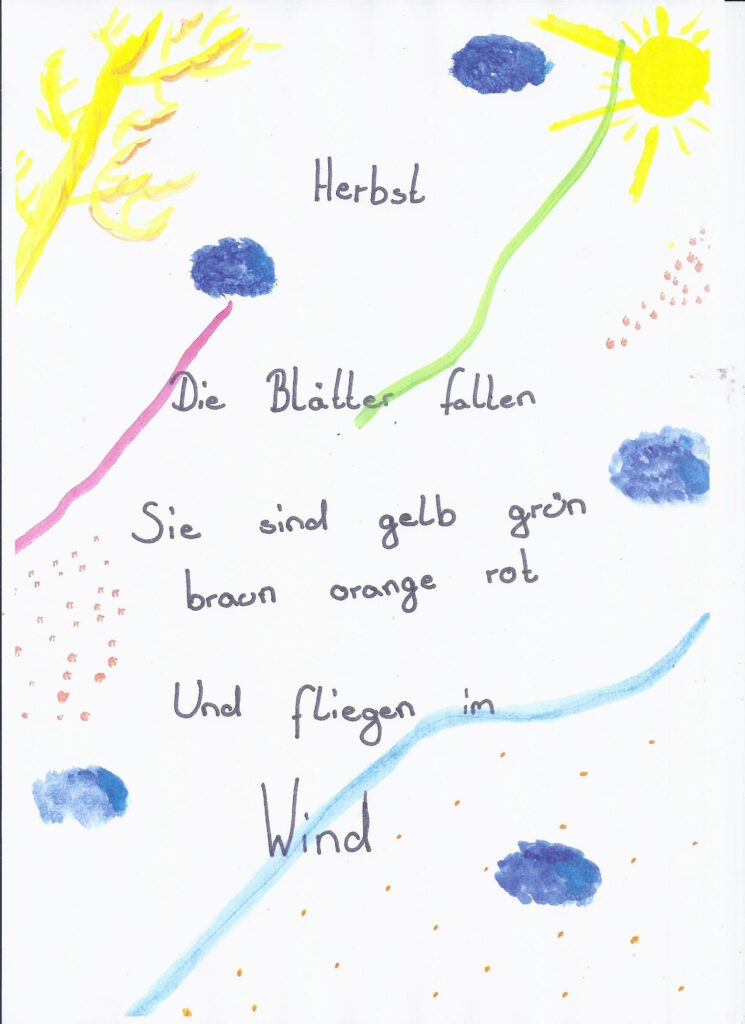 Herbst
Die Blätter fallen
Sie sind gelb grün
braun orange rot
Und fliegen im
Wind